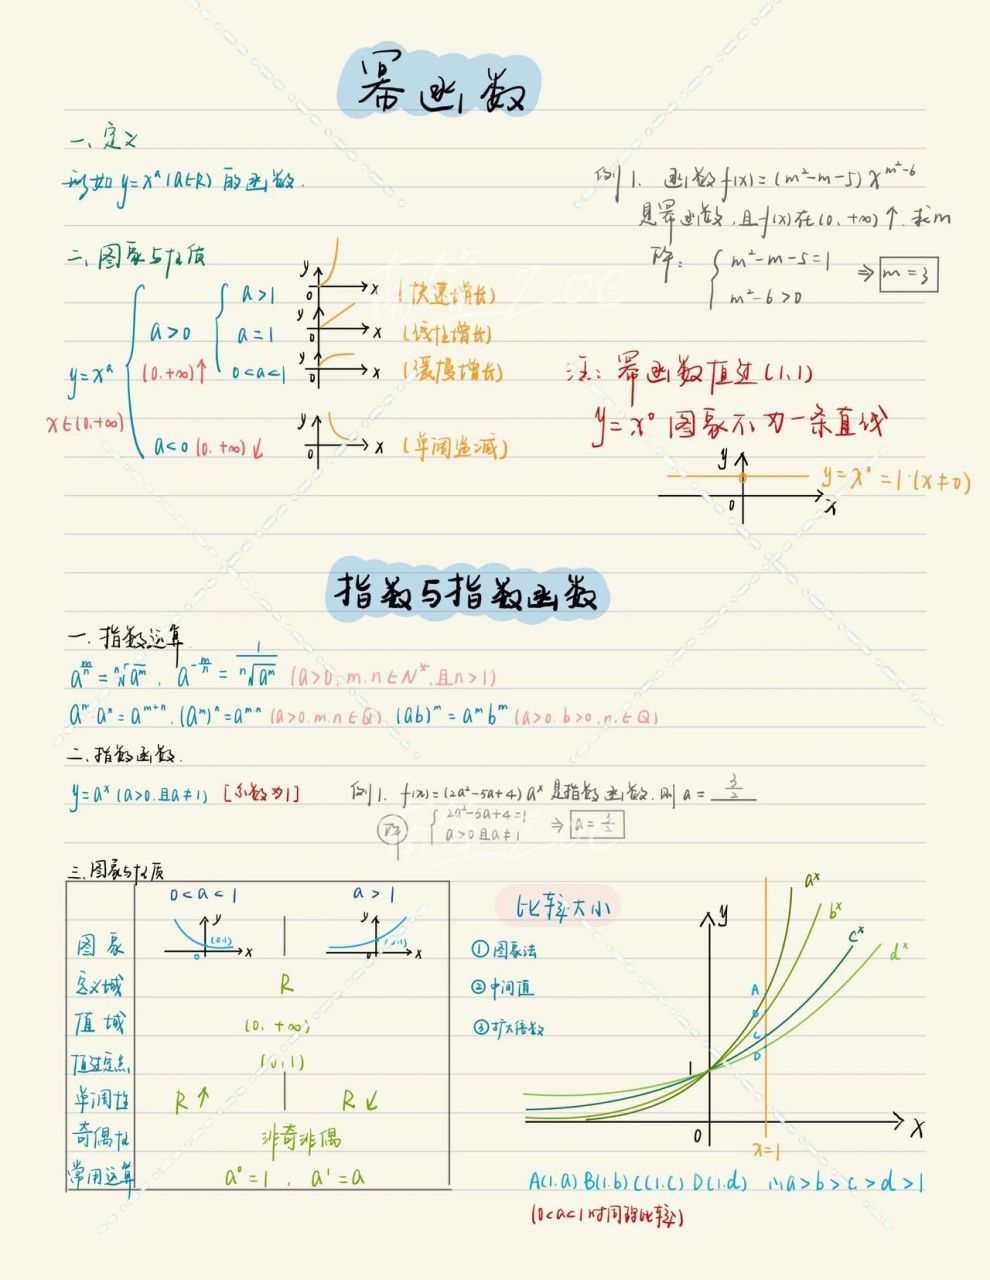 幂函数
一、定义
形如 y=xᵃ (a∈R) 的函数.
例1. 函数 f(x)=(m²-m-5)x^{m²-6}
是幂函数, 且 f(x) 在 (0,+∞)↑. 求m
解: { m²-m-5=1
m²-6>0
⇒ m=3
二、图象与性质
y=xᵃ
x∈(0,+∞)
a>0
(0,+∞)↑
a>1
y
0
x
(快速增长)
a=1
y
0
x
(线性增长)
0<a<1
y
0
x
(缓慢增长)
a<0 (0,+∞)↙
y
0
x
(单调递减)
注: 幂函数恒过(1,1)
y=x⁰ 图象不为一条直线
y
y=x⁰=1·(x≠0)
0
x
指数与指数函数
一. 指数运算
a^{m/n} = ⁿ√aᵐ , a^{-m/n} = 1/ⁿ√aᵐ (a>0, m.n∈N*, 且n>1)
aᵐ·aⁿ=a^{m+n}. (aᵐ)ⁿ=a^{m·n} (a>0.m.n∈Q). (ab)ᵐ=aᵐbᵐ (a>0.b>0,n.∈Q)
二、指数函数.
y=aˣ (a>0.且a≠1) [系数为1]
例1. f(x)=(2a²-5a+4)aˣ 是指数函数. 则 a= 3/2
解 { 2a²-5a+4=1
a>0且a≠1
⇒ a=3/2
三、图象与性质
0<a<1 a>1
图象
y
(0,1)
0
x
y
(0,1)
0
x
定义域 R
值域 (0,+∞)
恒过定点 (0,1)
单调性 R↑ R↙
奇偶性 非奇非偶
常用运算 a⁰=1 , a¹=a
比较大小
① 图象法
② 中间值
③ 扩大倍数
y
aˣ
bˣ
cˣ
dˣ
A
B
C
D
1
0
x
x=1
A(1.a) B(1.b) C(1.c) D(1.d) ∴a>b>c>d>1
(0<a<1时同理比较)